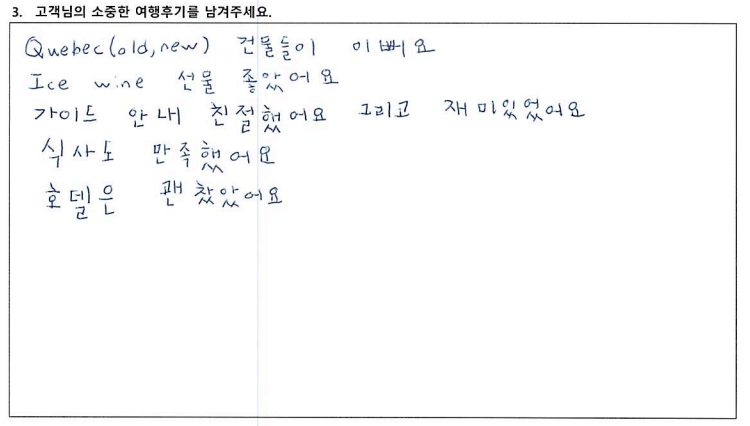 3. 고객님의 소중한 여행후기를 남겨주세요.
Quebec(old, new) 건물들이 이뻐요
Ice wine 선물 좋았어요
가이드 안내 친절했어요 그리고 재미있었어요
식사도 만족했어요
호델은 괜찮았어요